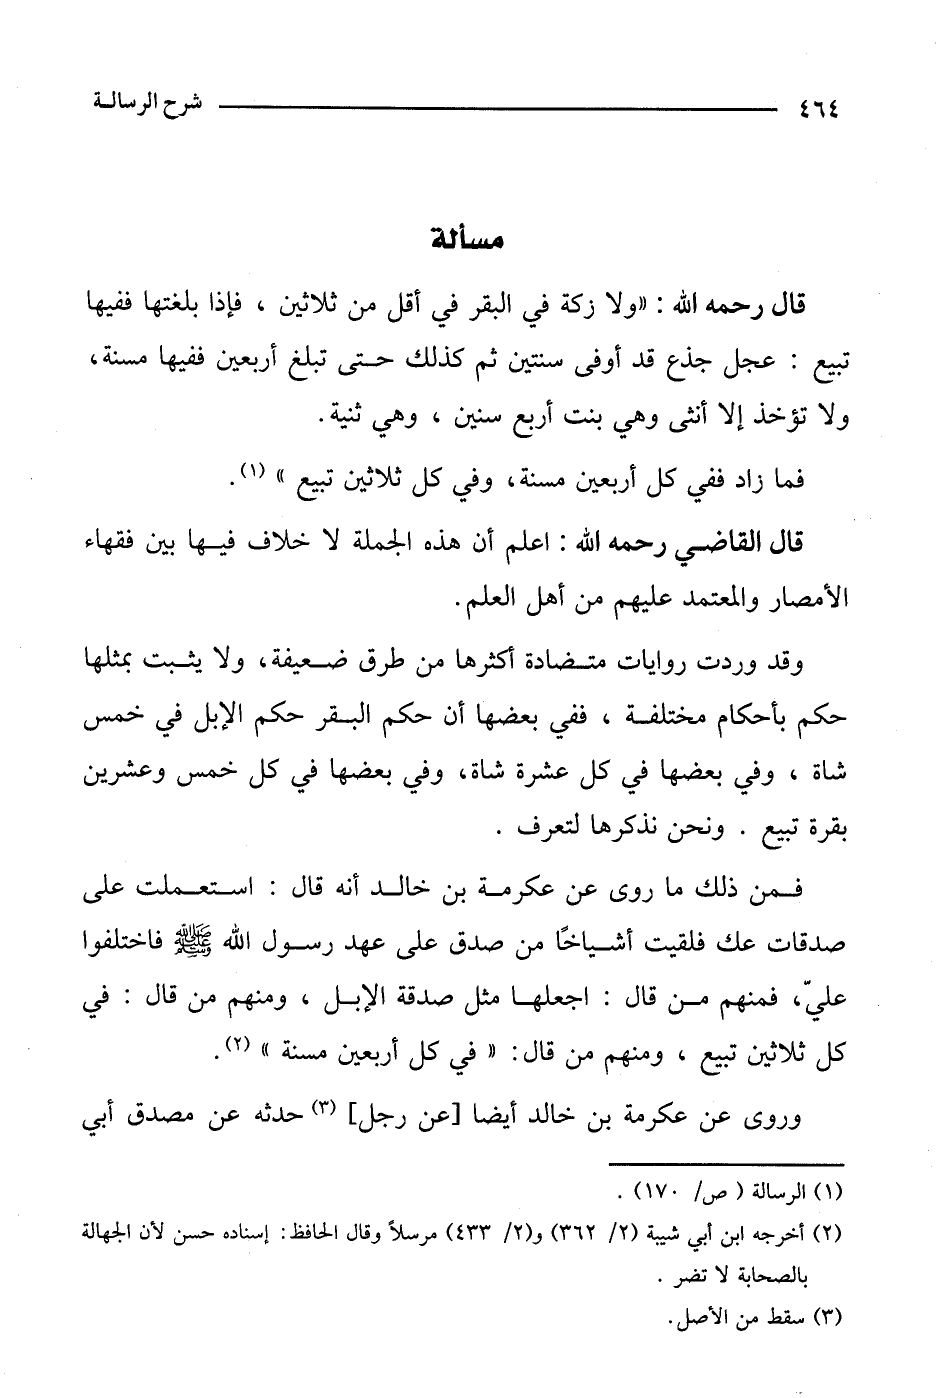 ٤٦٤ شرح الرسالة
مسألة
قال رحمه الله : «ولا زكة في البقر في أقل من ثلاثين ، فإذا بلغتها ففيها
تبيع : عجل جذع قد أوفى سنتين ثم كذلك حتى تبلغ أربعين ففيها مسنة،
ولا تؤخذ إلا أنثى وهي بنت أربع سنين ، وهي ثنية.
فما زاد ففي كل أربعين مسنة، وفي كل ثلاثين تبيع » (١).
قال القاضي رحمه الله : اعلم أن هذه الجملة لا خلاف فيها بين فقهاء
الأمصار والمعتمد عليهم من أهل العلم.
وقد وردت روايات متضادة أكثرها من طرق ضعيفة، ولا يثبت بمثلها
حكم بأحكام مختلفة ، ففي بعضها أن حكم البقر حكم الإبل في خمس
شاة ، وفي بعضها في كل عشرة شاة، وفي بعضها في كل خمس وعشرين
بقرة تبيع . ونحن نذكرها لتعرف .
فمن ذلك ما روى عن عكرمة بن خالد أنه قال : استعملت على
صدقات عك فلقيت أشياخًا من صدق على عهد رسول الله ﷺ فاختلفوا
عليّ، فمنهم من قال : اجعلها مثل صدقة الإبل ، ومنهم من قال : في
كل ثلاثين تبيع ، ومنهم من قال: « في كل أربعين مسنة » (٢).
وروى عن عكرمة بن خالد أيضا [عن رجل] (٣) حدثه عن مصدق أبي
(١) الرسالة ( ص/ ١٧٠) .
(٢) أخرجه ابن أبي شيبة (٢/ ٣٦٢) و(٢/ ٤٣٣) مرسلاً وقال الحافظ: إسناده حسن لأن الجهالة
بالصحابة لا تضر .
(٣) سقط من الأصل.